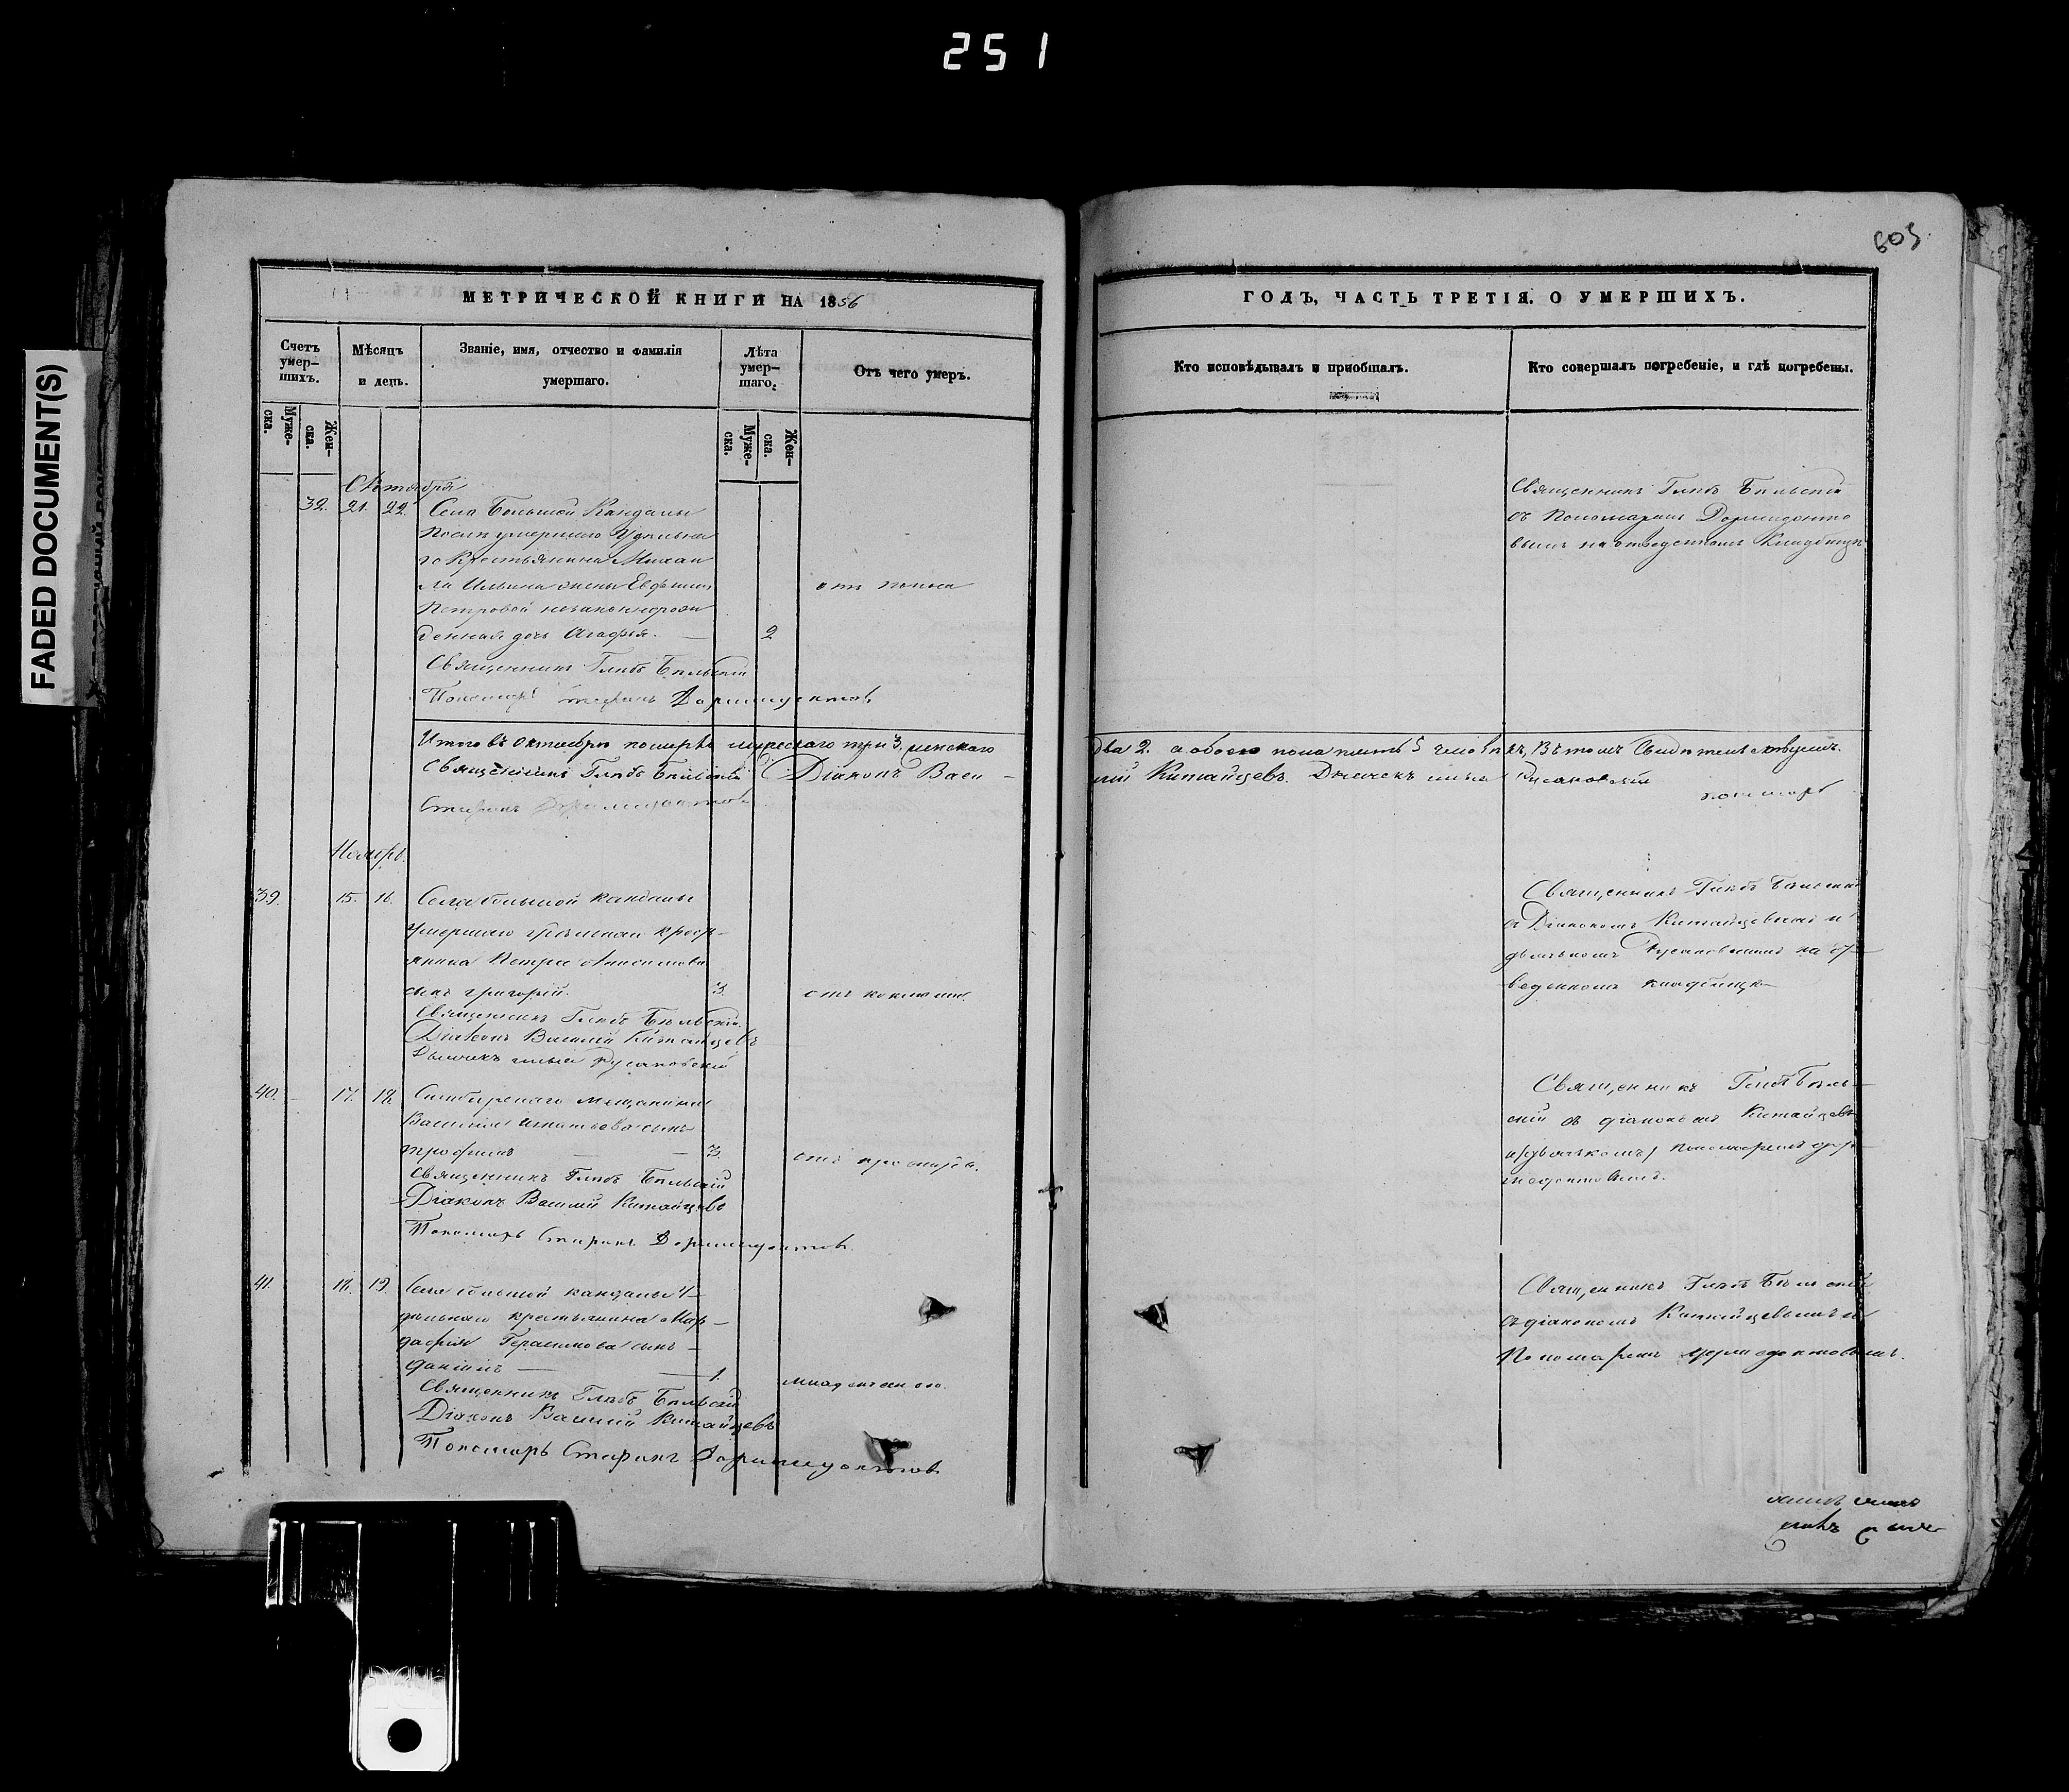 251
FADED DOCUMENT(S)
603
МЕТРИЧЕСКОЙ КНИГИ НА 1856
ГОДЪ, ЧАСТЬ ТРЕТІЯ. О УМЕРШИХЪ.
Счетъ умер-шихъ.
Мѣсяцъ и день.
Званіе, имя, отчество и фамилія умершаго.
Лѣта умер-шаго.
Отъ чего умеръ.
Кто исповѣдывалъ и пріобщалъ.
Кто совершалъ погребеніе, и гдѣ погребены.
Муже-ска.
Жен-ска.
Муже-ска.
Жен-ска.
Октября
32. 21. 22. Села Большой Кандалы
послѣ умершаго Удѣльна
го Крестьянина Михаи
ла Ильина жены Евфиміи
Петровой незаконнорож
денная дочь Агафья. — 2
Священникъ Глѣбъ Бѣльскій
Пономарь Стефанъ Дормидонтовъ
Священникъ Глѣбъ Бѣльскій
съ Пономаремъ Дормидонто
вымъ на отведенномъ Кладбищѣ
Итого въ Октябрѣ померло мужескаго три 3. женскаго
два 2. а обоего пола пять 5 человѣкъ, Въ томъ
Священникъ Глѣбъ Бѣльскій Діаконъ Васи-
лій Китайцевъ. Дьячекъ Илья Русановскій
пономарь
Стефанъ Дормидонтовъ
Ноябрь.
39. 15. 16. Села большой кандалы
умершаго удѣльнаго крест-
янина Петра Анисимова
сынъ григорій. 3.
Священникъ Глѣбъ Бѣльскій.
Діаконъ Василій Китайцевъ
Дьячекъ Илья Русановскій
Священникъ Глѣбъ Бѣльскій
съ Діакономъ Китайцевымъ и
дьячкомъ Русановскимъ на от-
веденномъ кладбищѣ
40. 17. 18. Симбирскаго мѣщанина
Василія Игнатьева сынъ
трофимъ — 3.
Священникъ Глѣбъ Бѣльскій
Діаконъ Василій Китайцевъ
Пономарь Стефанъ Дормидонтовъ.
Священникъ Глѣбъ Бѣль-
скій съ діакономъ Китайцевы
пономаремъ дор-
медонтовымъ.
41. 18. 19. Села большой кандалы У-
дѣльнаго крестьянина Мар-
дарія Герасимова сынъ -
даніилъ — 1. младенческою.
Священникъ Глѣбъ Бѣльскій
Діаконъ Василій Китайцевъ
Пономарь Стефанъ Дормидонтовъ
Священникъ Глѣбъ Бѣльскій
съ діакономъ Китайцевымъ и
Пономаремъ дормедонтовымъ.